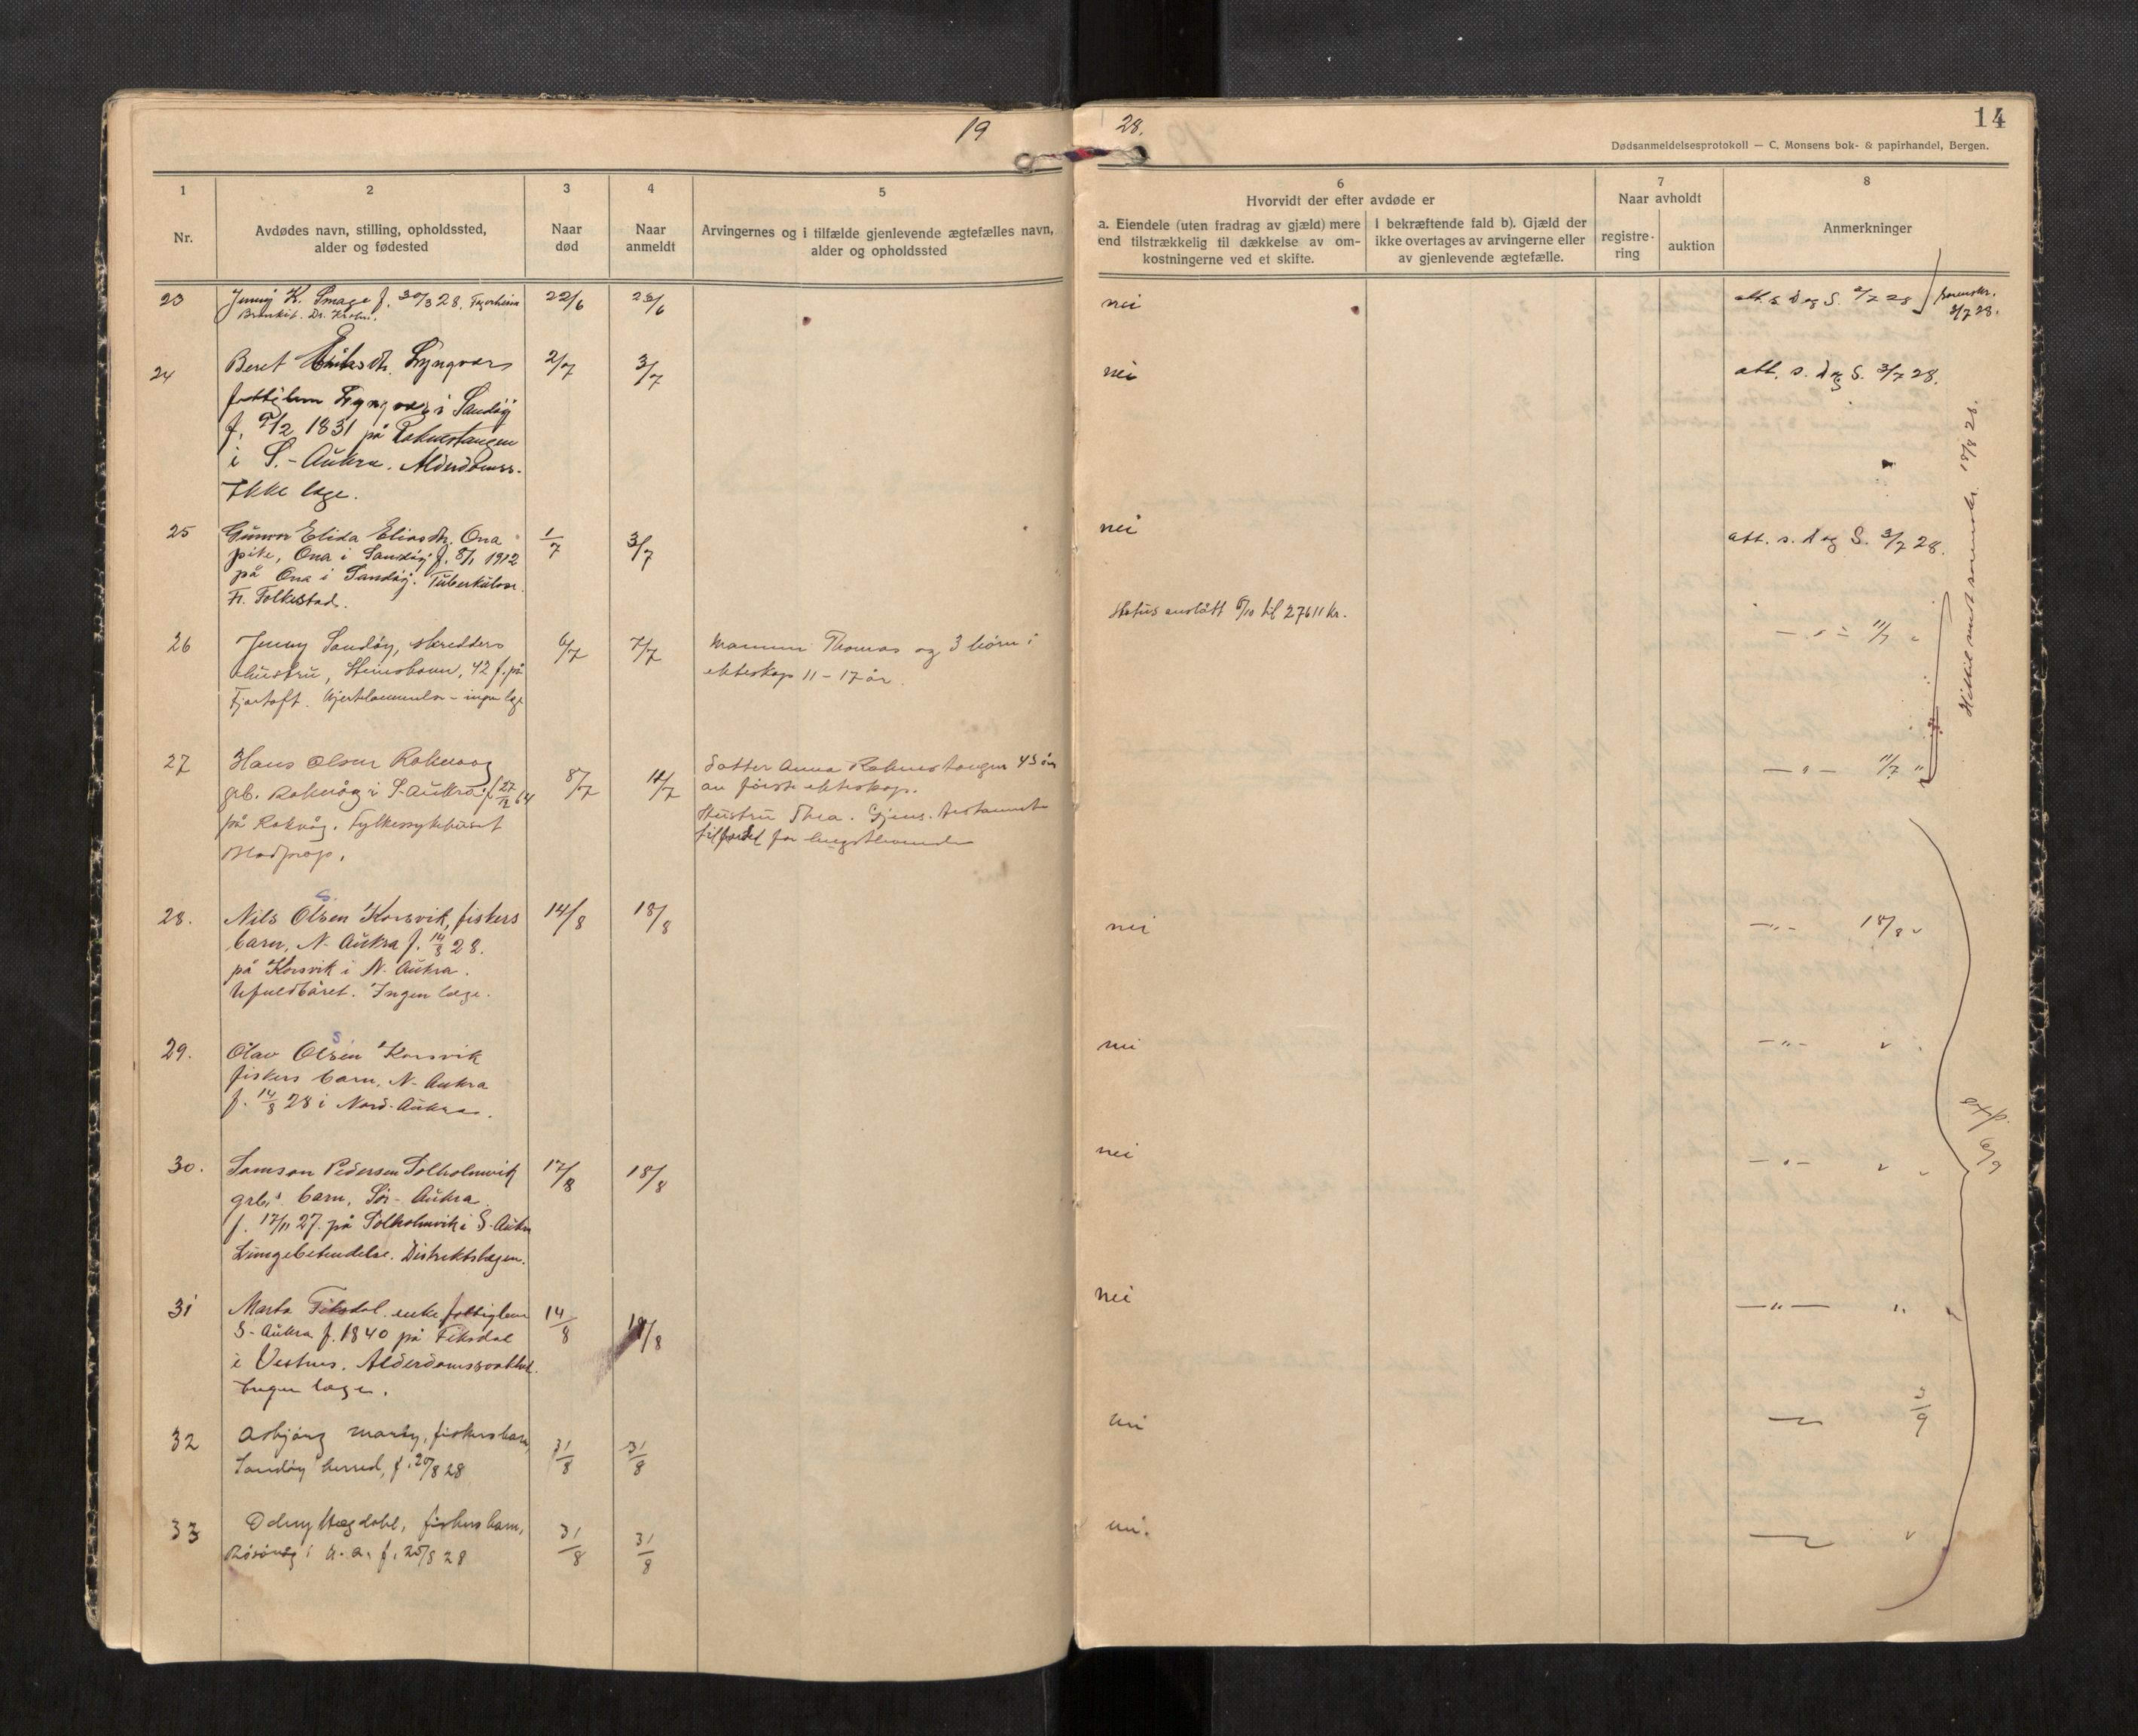 19
28.
14
Dødsanmeldelsesprotokoll — C. Monsens bok- & papirhandel, Bergen.
1
Nr.
2
Avdødes navn, stilling, opholdssted,
alder og fødested
3
Naar
død
4
Naar
anmeldt
5
Arvingernes og i tilfælde gjenlevende ægtefælles navn,
alder og opholdssted
6
Hvorvidt der efter avdøde er
a. Eiendele (uten fradrag av gjæld) mere
end tilstrækkelig til dækkelse av om-
kostningerne ved et skifte.
I bekræftende fald b). Gjæld der
ikke overtages av arvingerne eller
av gjenlevende ægtefælle.
7
Naar avholdt
registre-
ring
auktion
8
Anmerkninger
23
Jenny K. Smage f. 30/3 28.
Bronkit. Dr. Krohn.
22/6
23/6
nei
att. s. d og S. 2/7 28
sorenskr.
3/7 28.
24
Beret Eriksdtr. Lyngvær
fattiglem Lyngvær i Sandøy
f. 9/2 1831 på Rakvestangen
i S.-Aukra. Alderdomss.
Ikke læge.
2/7
3/7
nei
att. s. d og S. 3/7 28.
25
Gunvor Elida Eliasdtr. Ona
pike, Ona i Sandøy f. 8/1 1912
på Ona i Sandøy. Tuberkulose.
Fr. Folkestad.
1/7
3/7
nei
att. s. d og S. 3/7 28.
Status anslått 6/10 til 27611 kr.
26
Jenny Sandøy, skredders
hustru, Steinshamn, 42 f. på
Fjørtoft. Hjertelammelse - ingen læge
6/7
7/7
Mannen Thomas og 3 börn i
ekteskap 11 - 17 år.
— " — 11/7 "
27
Hans Olsen Rakvaag
grb. Rakvåg i S-Aukra f. 27/12 64
på Rakvåg. Fylkessykehuset
Blodprop.
8/7
11/7
Datter Anna Rakvestangen 43 år
av første ekteskap.
Hustru Thea. Gjens. testamente
til fordel for lengstlevende
— " — 11/7 "
Hittil meldt sorenskr. 18/8 28.
28.
Nils Olsen Korsvik, fiskers
barn, N-Aukra f. 14/8 28.
på Korsvik i N. Aukra.
Ufuldbåret. Ingen læge.
14/8
18/8
nei
— " — 18/8 "
29.
Olav Olsen Korsvik
fiskers barn, N-Aukra
f. 14/8 28 i Nord-Aukra.
nei
— " — "
30.
Samson Pedersen Solholmvik
grb.s barn, Sör-Aukra
f. 17/11 27. på Solholmvik i S-Aukra
Lungebetendelse. Distriktslægen.
17/8
18/8
nei
— " — "
exp.
6/9
31
Marta Fiksdal enke fattiglem
S-Aukra f. 1840 på Fiksdal
i Vestnes. Alderdomssvakhet.
Ingen læge.
14/8
19/8
nei
— " — "
32
Asbjørg Marøy, fiskers barn,
Sandøy herred, f. 20/8 28
31/8
31/8
nei
3/9
33
Odny Hægdahl, fiskers barn,
f. 25/8 28
31/8
31/8
nei.